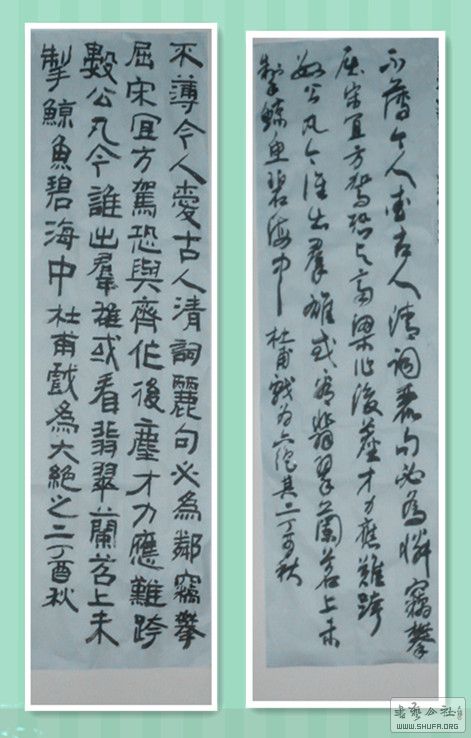 不薄今人愛古人清詞麗句必為鄰竊攀
屈宋宜方駕恐與齊作後塵才力應難跨
數公凡今誰出羣雄或看翡翠蘭苕上未
掣鯨魚碧海中 杜甫戲為六絕之二丁酉秋
不薄今人愛古人清詞麗句必為憐竊攀
屈宋宜方駕恐與齊梁作後塵才力應難跨
數公凡今誰出羣雄或看翡翠蘭苕上未
掣鯨魚碧海中 杜甫戲為六絕其二丁酉秋
書藝公社
WWW.SHUFA.ORG